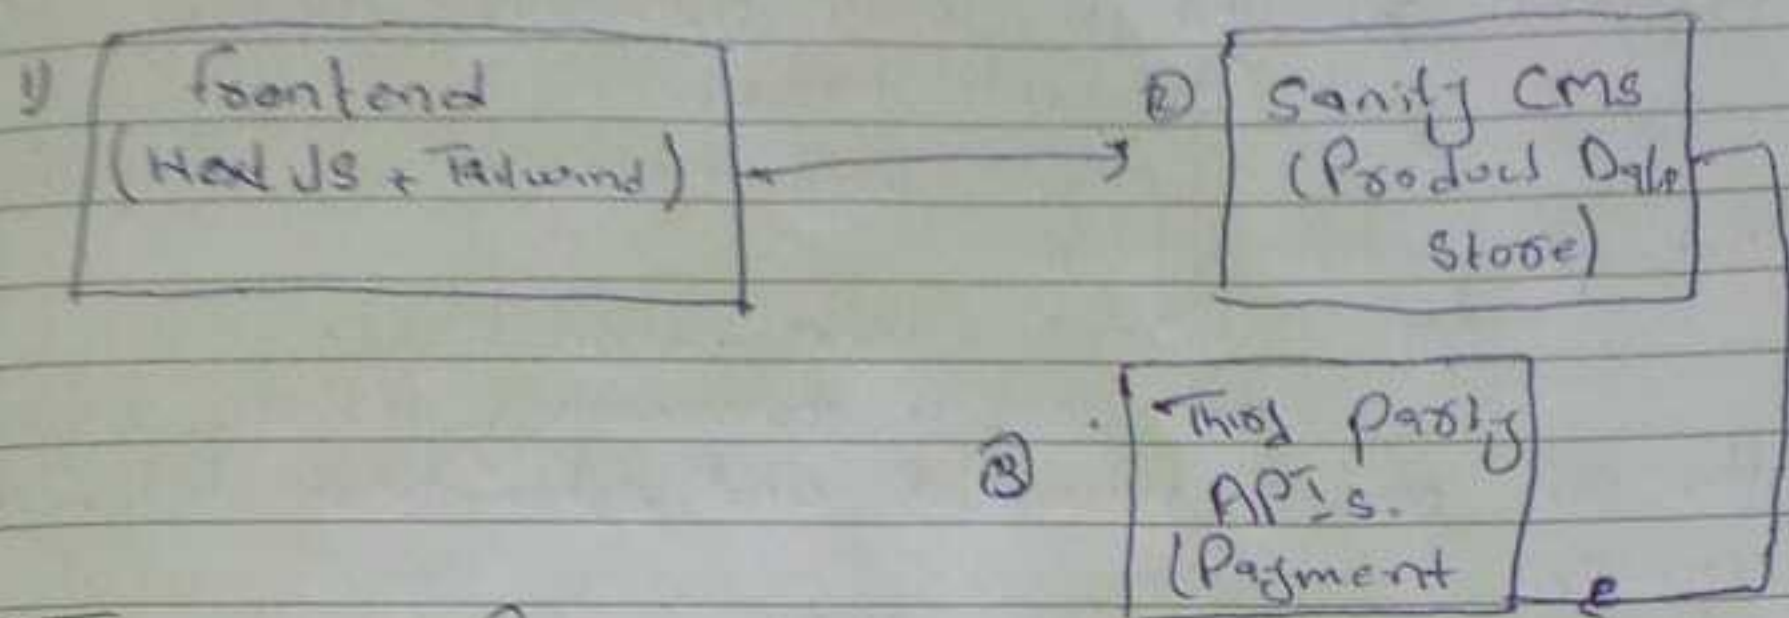 1) frontend
(Next JS + Tailwind)
② Sanity CMS
(Product Data
Store)
③ Third Party
APIs.
(Payment